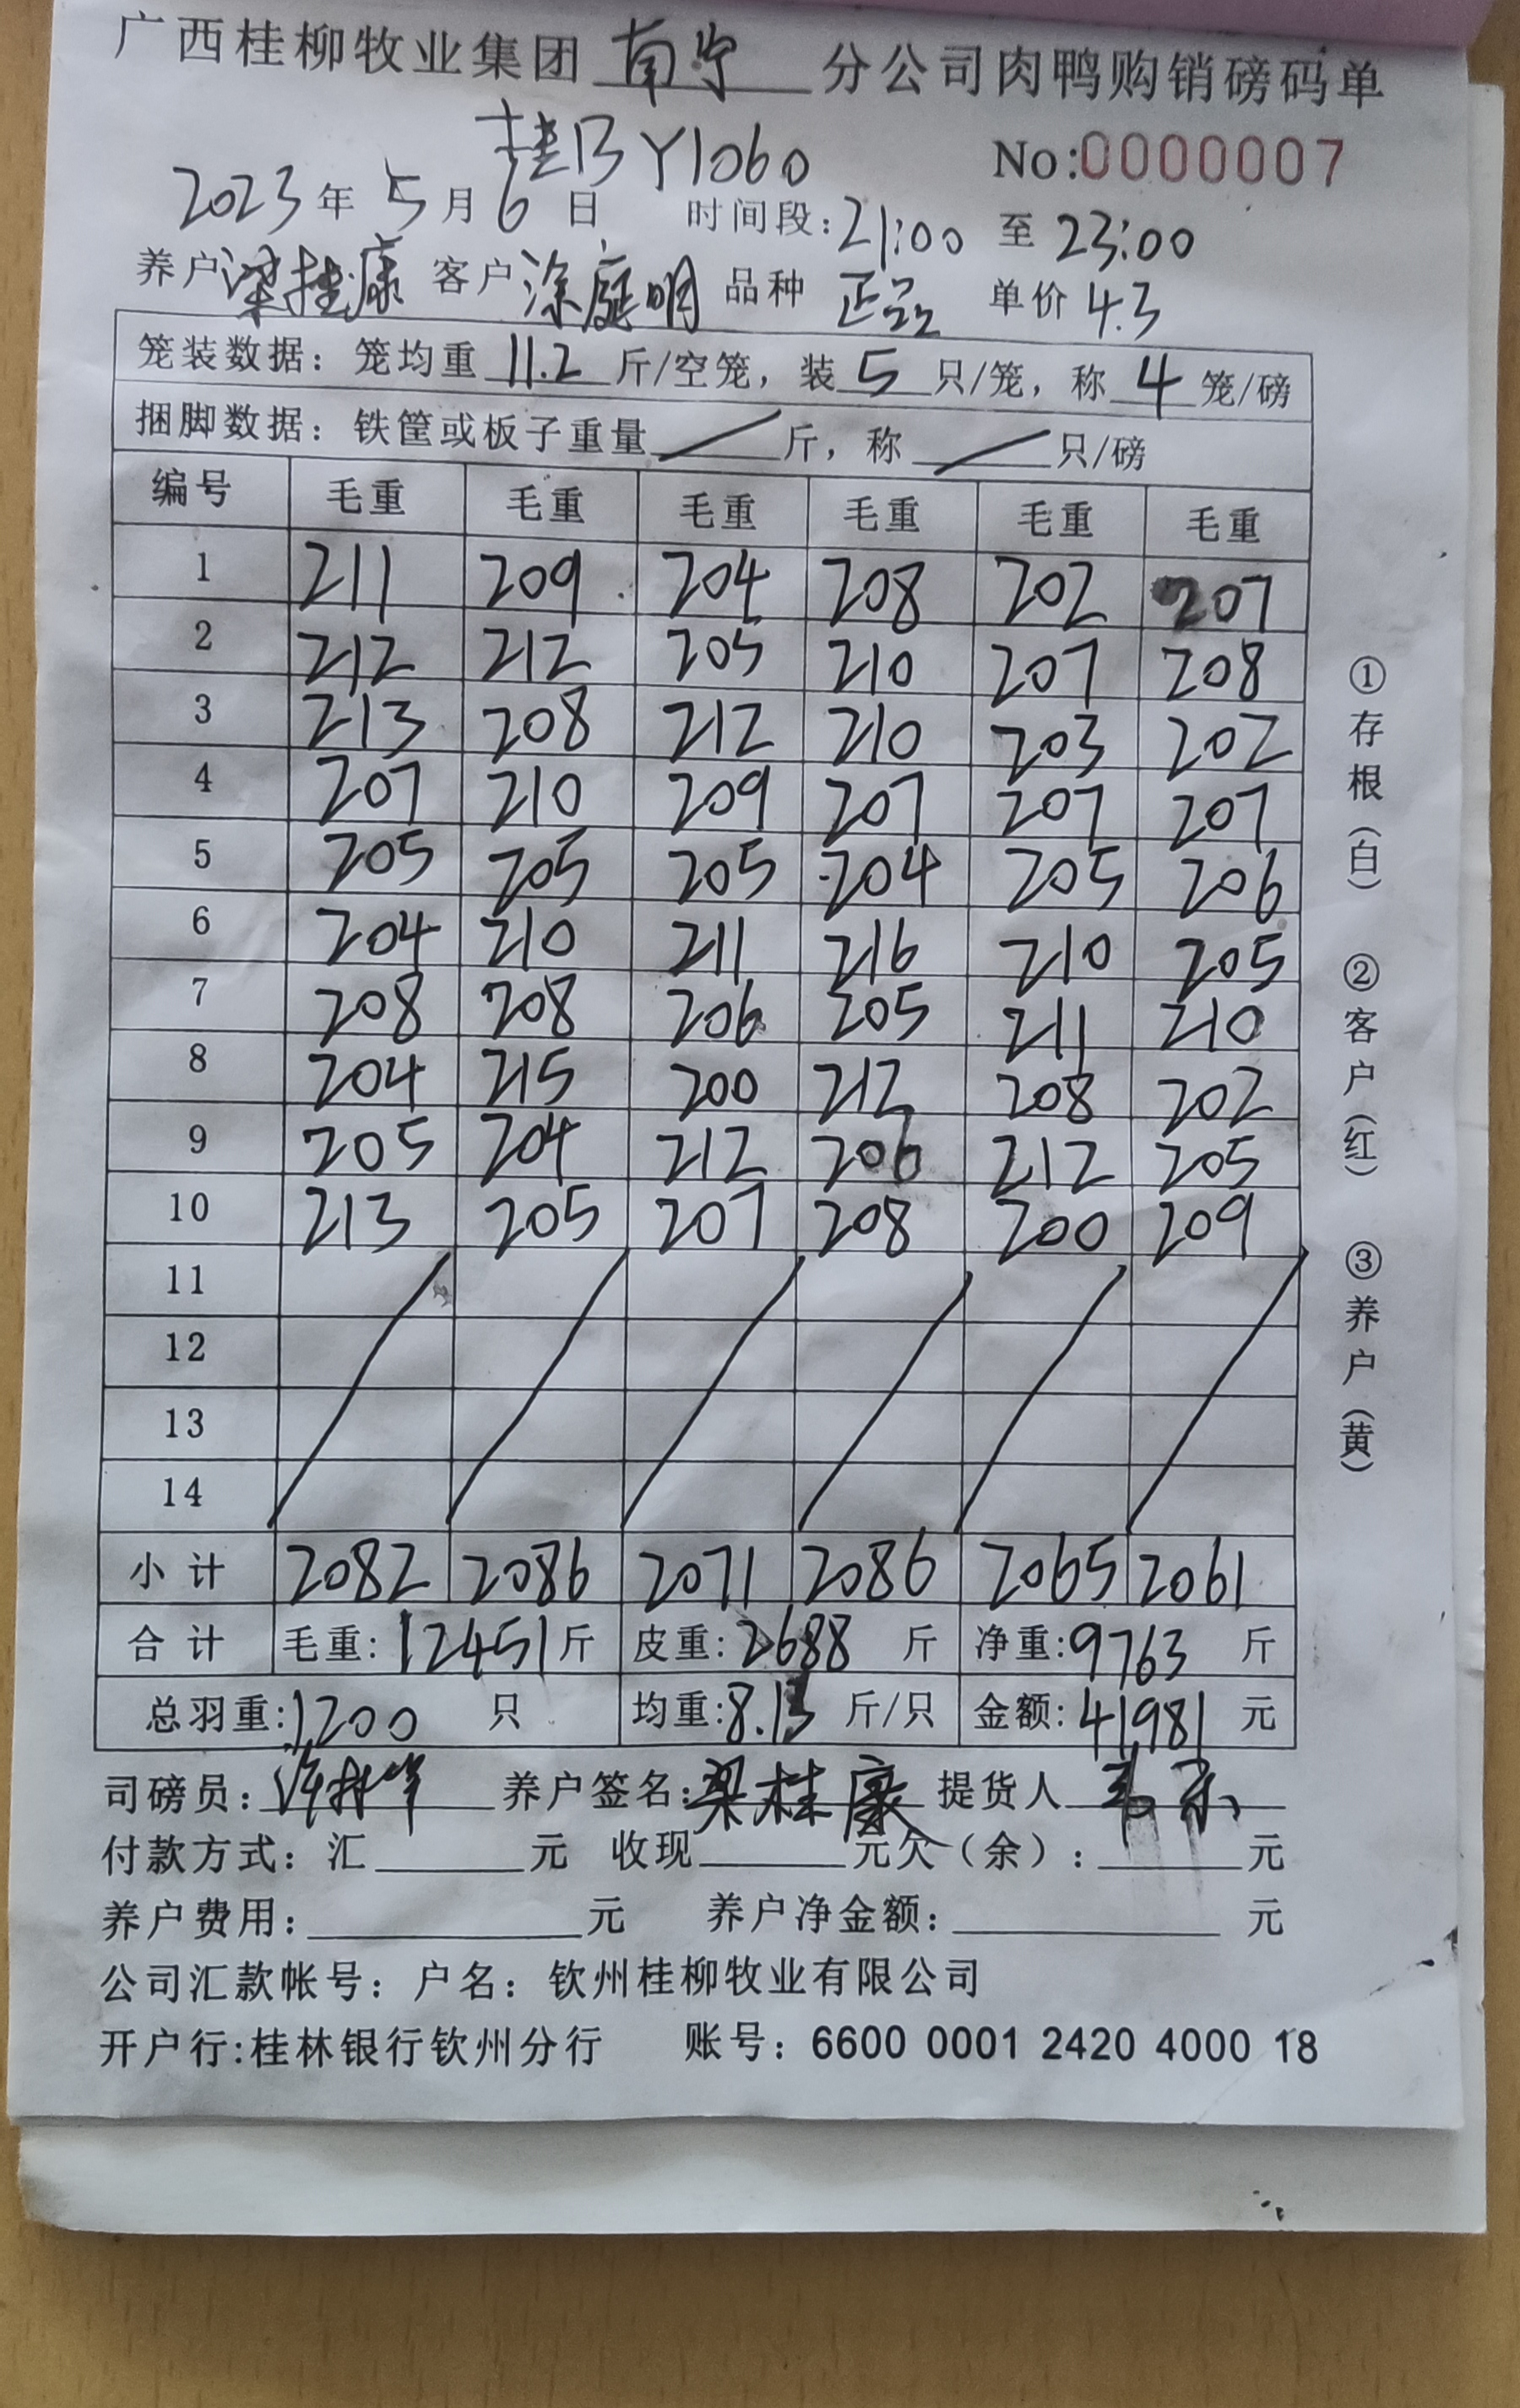 广西桂柳牧业集团 南宁 分公司肉鸭购销磅码单
桂BY1060 No:0000007
2023年 5月 6日 时间段:21:00 至 23:00
养户 梁桂康 客户 涂庭明 品种 正品 单价 4.3
笼装数据：笼均重 11.2 斤/空笼，装 5 只/笼，称 4 笼/磅
捆脚数据：铁筐或板子重量 / 斤，称 / 只/磅
编号 毛重 毛重 毛重 毛重 毛重 毛重
1 211 209 204 208 202 207
2 212 212 205 210 207 208
3 213 208 212 210 203 202
4 207 210 209 207 207 207
5 205 205 205 204 205 206
6 204 210 211 216 210 205
7 208 208 206 205 211 210
8 204 215 200 212 208 202
9 205 204 212 206 212 205
10 213 205 207 208 200 209
11
12
13
14
小计 2082 2086 2071 2086 2065 2061
合计 毛重:12451斤 皮重:2688 斤 净重:9763 斤
总羽重:1200 只 均重:8.13 斤/只 金额:41981 元
司磅员: 养户签名:梁桂康 提货人
付款方式：汇 元 收现 元欠（余）: 元
养户费用: 元 养户净金额: 元
公司汇款帐号：户名：钦州桂柳牧业有限公司
开户行:桂林银行钦州分行 账号：6600 0001 2420 4000 18
①存根（白） ②客户（红） ③养户（黄）